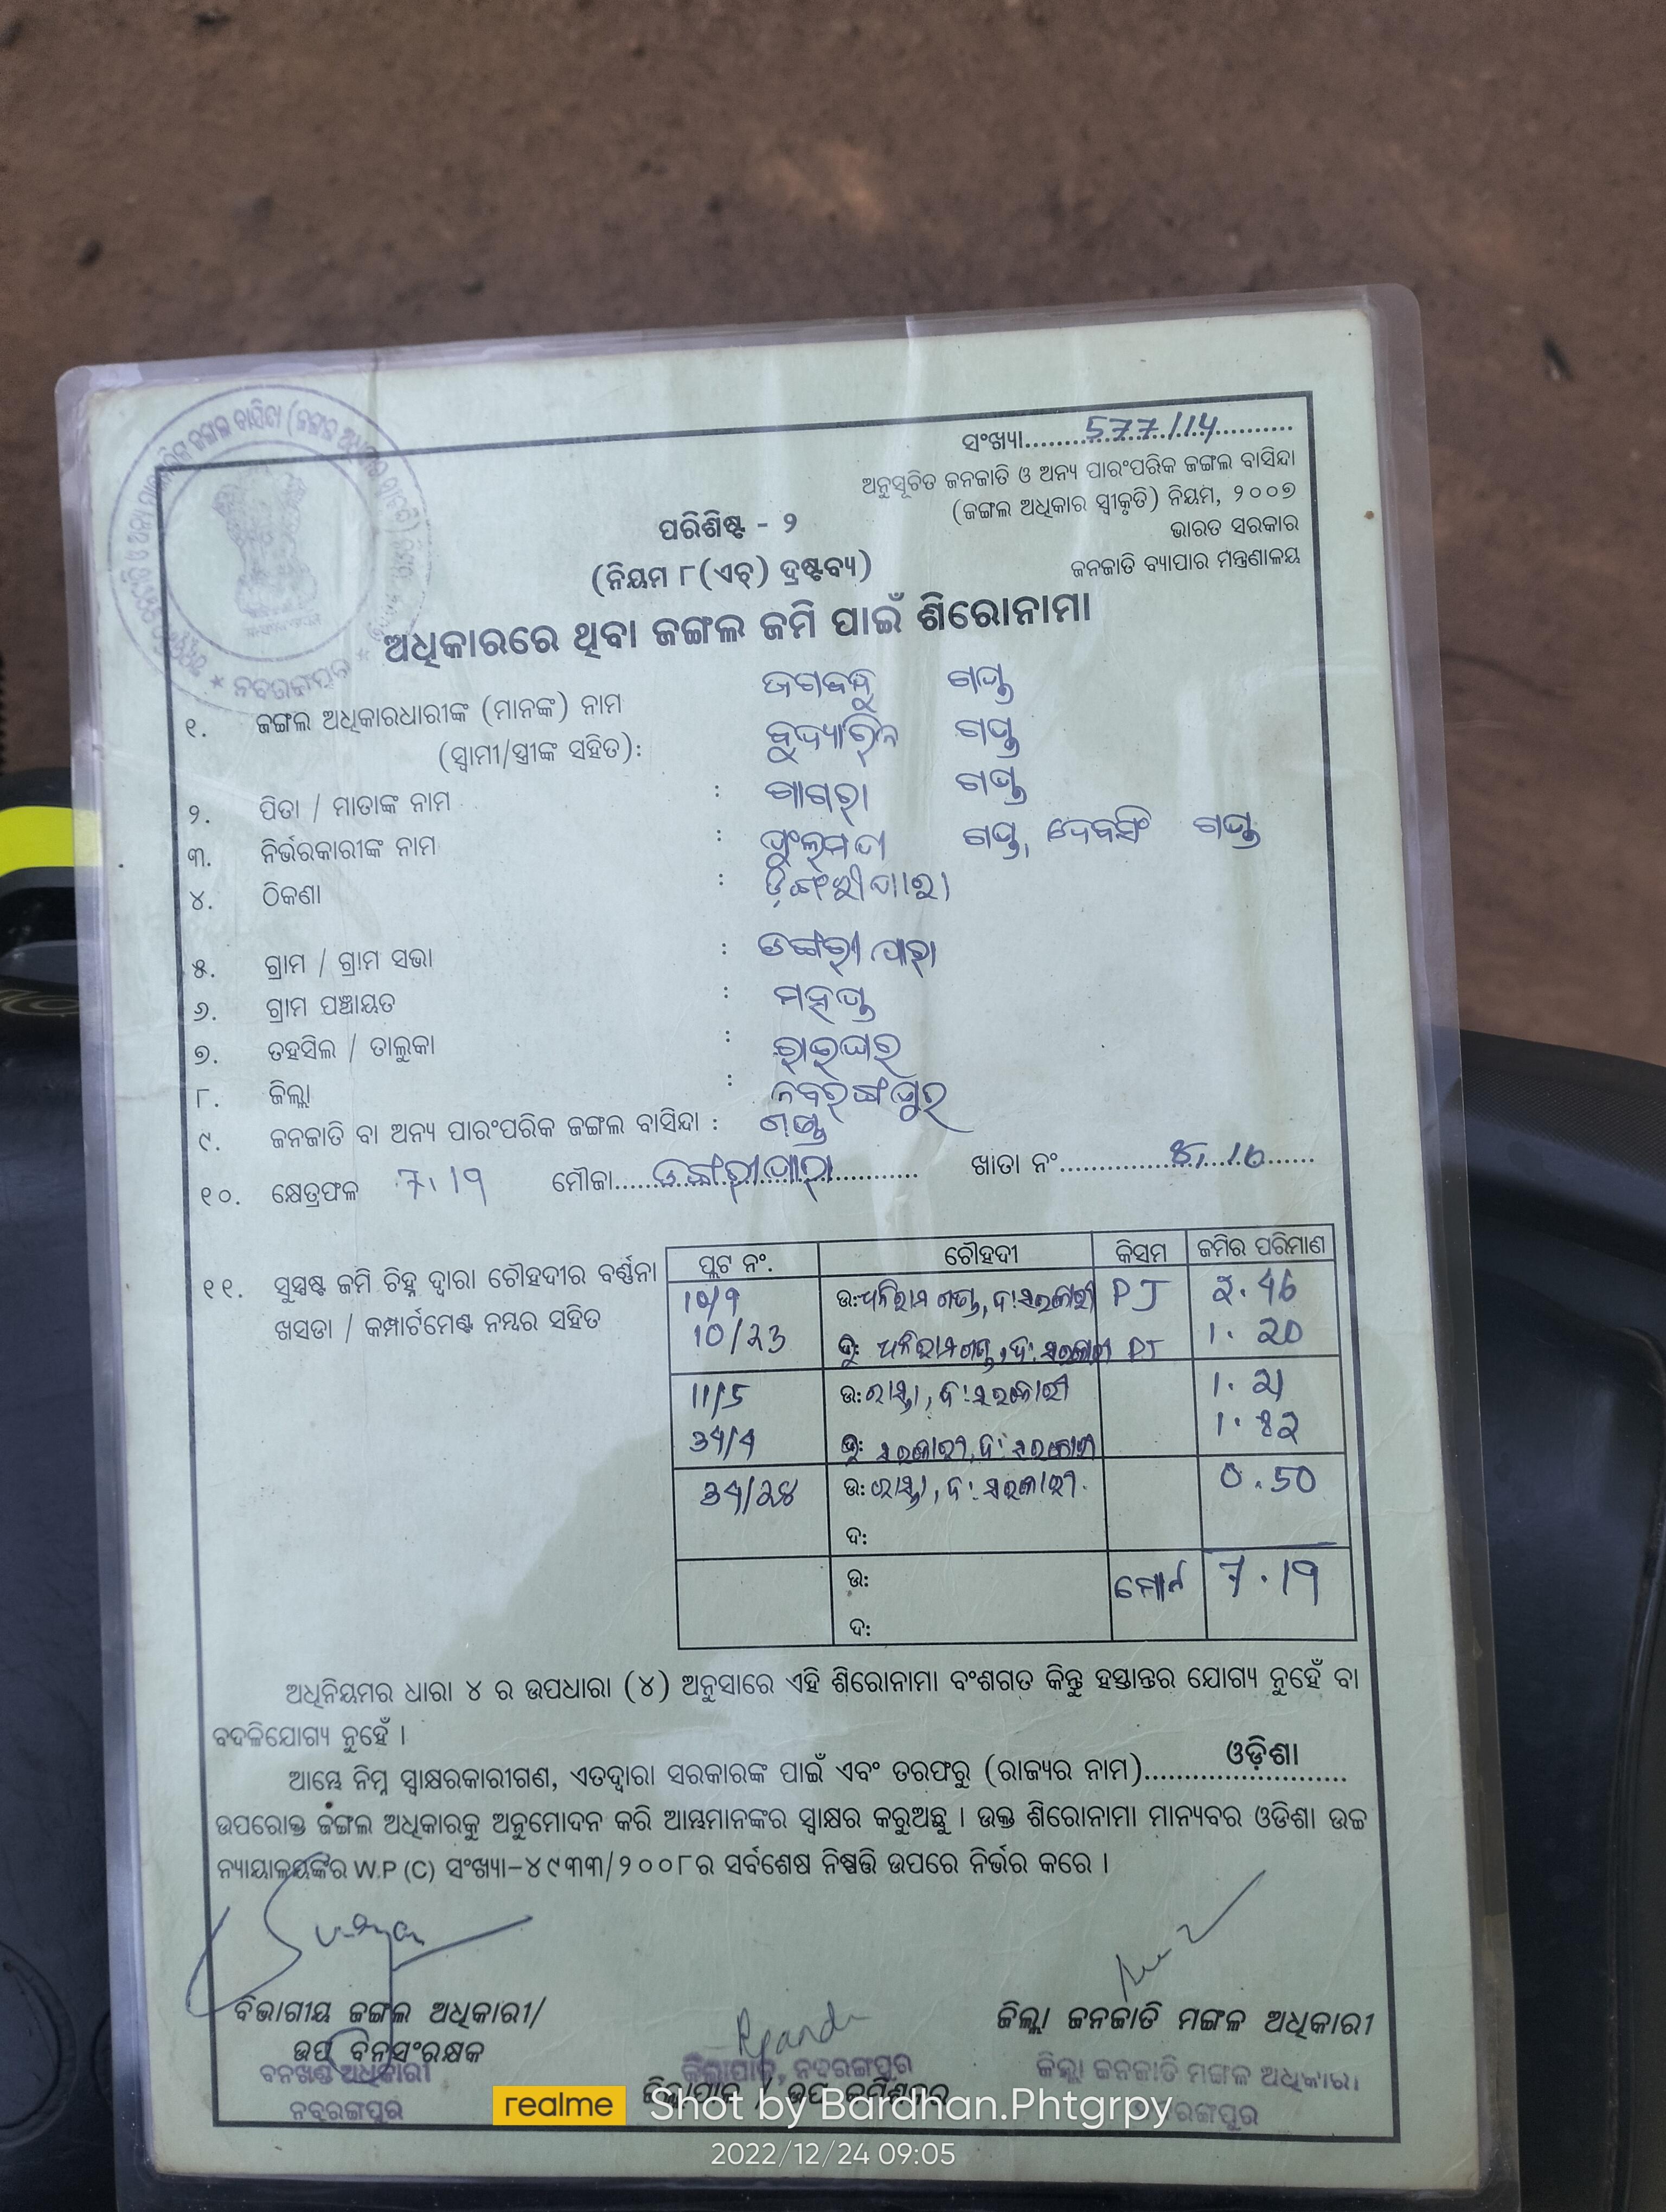 ସଂଖ୍ୟା 577/14
ଅନୁସୂଚିତ ଜନଜାତି ଓ ଅନ୍ୟ ପାରଂପରିକ ଜଙ୍ଗଲ ବାସିନ୍ଦା
(ଜଙ୍ଗଲ ଅଧିକାର ସ୍ୱୀକୃତି) ନିୟମ, ୨୦୦୭
ଭାରତ ସରକାର
ଜନଜାତି ବ୍ୟାପାର ମନ୍ତ୍ରଣାଳୟ
ପରିଶିଷ୍ଟ - ୨
(ନିୟମ ୮(ଏଚ୍) ଦ୍ରଷ୍ଟବ୍ୟ)
ଅଧିକାରରେ ଥିବା ଜଙ୍ଗଲ ଜମି ପାଇଁ ଶିରୋନାମା
୧. ଜଙ୍ଗଲ ଅଧିକାରଧାରୀଙ୍କ (ମାନଙ୍କ) ନାମ ଜଗବନ୍ଧୁ ଗଣ୍ଡ
(ସ୍ୱାମୀ/ସ୍ତ୍ରୀଙ୍କ ସହିତ): ଗଣ୍ଡ
୨. ପିତା / ମାତାଙ୍କ ନାମ : ଗଣ୍ଡ
୩. ନିର୍ଭରକାରୀଙ୍କ ନାମ : ଗଣ୍ଡ, ଦେବସିଂ ଗଣ୍ଡ
୪. ଠିକଣା :
୫. ଗ୍ରାମ / ଗ୍ରାମ ସଭା : ଡଙ୍ଗରୀପାରା
୬. ଗ୍ରାମ ପଞ୍ଚାୟତ :
୭. ତହସିଲ / ତାଲୁକା : ରାଇଘର
୮. ଜିଲ୍ଲା : ନବରଙ୍ଗପୁର
୯. ଜନଜାତି ବା ଅନ୍ୟ ପାରଂପରିକ ଜଙ୍ଗଲ ବାସିନ୍ଦା : ଗଣ୍ଡ
୧୦. କ୍ଷେତ୍ରଫଳ 7.19 ମୌଜା ଡଙ୍ଗରୀପାରା ଖାତା ନଂ
୧୧. ସୁସ୍ପଷ୍ଟ ଜମି ଚିହ୍ନ ଦ୍ୱାରା ଚୌହଦୀର ବର୍ଣ୍ଣନା
ଖସଡା / କମ୍ପାର୍ଟମେଣ୍ଟ ନମ୍ବର ସହିତ
ପ୍ଲଟ ନଂ. ଚୌହଦୀ କିସମ ଜମିର ପରିମାଣ
10/9 ଉ: ଧନିରାମ ଗଣ୍ଡ, ଦ: ସରକାରୀ PJ 2.46
10/23 ଧନିରାମ ଗଣ୍ଡ, ଦ: ସରକାରୀ PJ 1.20
11/5 ଉ: ରାସ୍ତା, ଦ: ସରକାରୀ 1.21
34/4 ସରକାରୀ, ଦ: ସରକାରୀ 1.82
34/28 ଉ: ରାସ୍ତା, ଦ: ସରକାରୀ 0.50
ଦ:
ଉ: ମୋଟ 7.19
ଦ:
ଅଧିନିୟମର ଧାରା ୪ ର ଉପଧାରା (୪) ଅନୁସାରେ ଏହି ଶିରୋନାମା ବଂଶଗତ କିନ୍ତୁ ହସ୍ତାନ୍ତର ଯୋଗ୍ୟ ନୁହେଁ ବା
ବଦଳିଯୋଗ୍ୟ ନୁହେଁ ।
ଆମ୍ଭେ ନିମ୍ନ ସ୍ୱାକ୍ଷରକାରୀଗଣ, ଏତଦ୍ୱାରା ସରକାରଙ୍କ ପାଇଁ ଏବଂ ତରଫରୁ (ରାଜ୍ୟର ନାମ) ଓଡ଼ିଶା
ଉପରୋକ୍ତ ଜଙ୍ଗଲ ଅଧିକାରକୁ ଅନୁମୋଦନ କରି ଆମ୍ଭମାନଙ୍କର ସ୍ୱାକ୍ଷର କରୁଅଛୁ । ଉକ୍ତ ଶିରୋନାମା ମାନ୍ୟବର ଓଡିଶା ଉଚ୍ଚ
ନ୍ୟାୟାଳୟଙ୍କର W.P (C) ସଂଖ୍ୟା-୪୯୩୩/୨୦୦୮ର ସର୍ବଶେଷ ନିଷ୍ପତ୍ତି ଉପରେ ନିର୍ଭର କରେ ।
ବିଭାଗୀୟ ଜଙ୍ଗଲ ଅଧିକାରୀ/
ଉପ ବନସଂରକ୍ଷକ
ବନଖଣ୍ଡ ଅଧିକାରୀ
ନବରଙ୍ଗପୁର
ଜିଲ୍ଲାପାଳ, ନବରଙ୍ଗପୁର
ଜିଲ୍ଲାପାଳ / ଉପ କମିଶନର
ଜିଲ୍ଲା ଜନଜାତି ମଙ୍ଗଳ ଅଧିକାରୀ
ଜିଲ୍ଲା ଜନଜାତି ମଙ୍ଗଳ ଅଧିକାରୀ
ନବରଙ୍ଗପୁର
realme Shot by Bardhan.Phtgrpy
2022/12/24 09:05